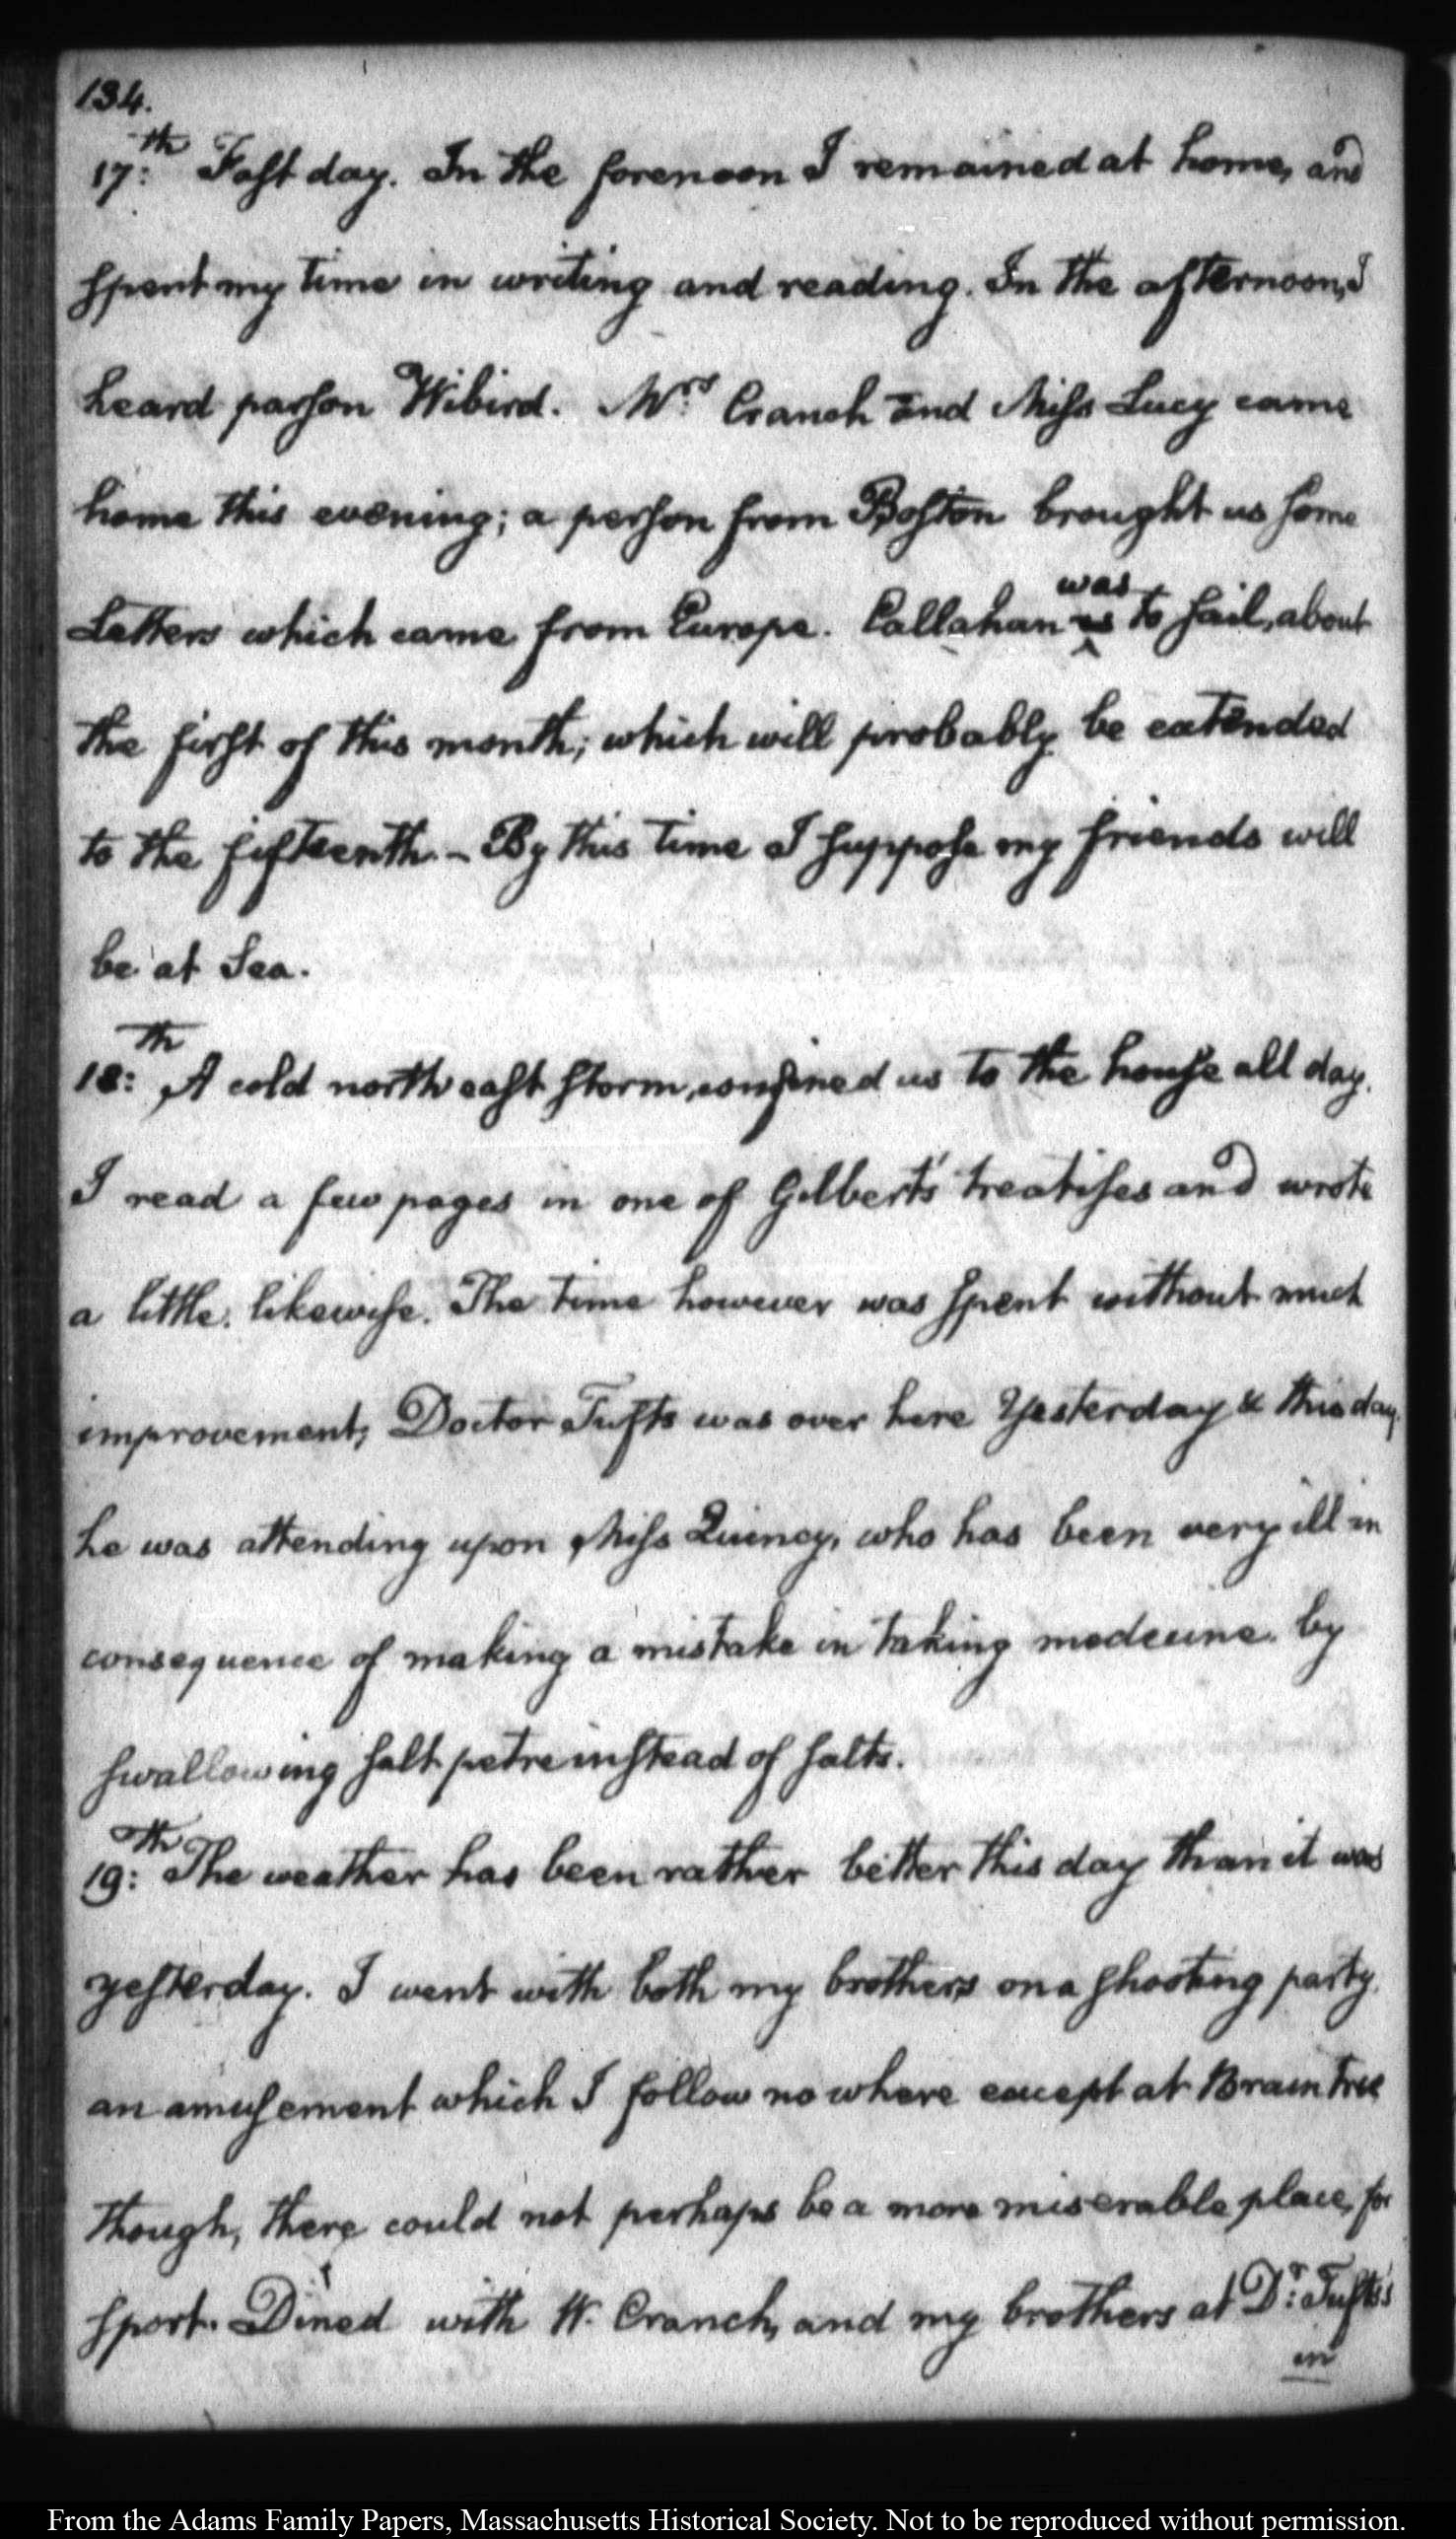 134.
17:th Fast day. In the forenoon I remained at home, and
spent my time in writing and reading. In the afternoon, I
heard parson Wibird. Mrs. Cranch and Miss Lucy came
home this evening; a person from Boston brought us some
Letters which came from Europe. Callahan was to sail, about
the first of this month; which will probably be extended
to the fifteenth. – By this time I suppose my friends will
be at Sea.
18:th A cold north east storm, confined us to the house all day.
I read a few pages in one of Gilbert's treatises and wrote
a little, likewise. The time however was spent without much
improvement; Doctor Tufts was over here Yesterday & this day.
he was attending upon Miss Quincy, who has been very ill in
consequence of making a mistake in taking medecine. by
swallowing salt petre instead of salts.
19:th The weather has been rather better this day than it was
yesterday. I went with both my brothers on a shooting party.
an amusement which I follow no where except at Braintree
though, there could not perhaps be a more miserable place, for
sport. Dined with W. Cranch, and my brothers at Dr: Tufts's
in
From the Adams Family Papers, Massachusetts Historical Society. Not to be reproduced without permission.